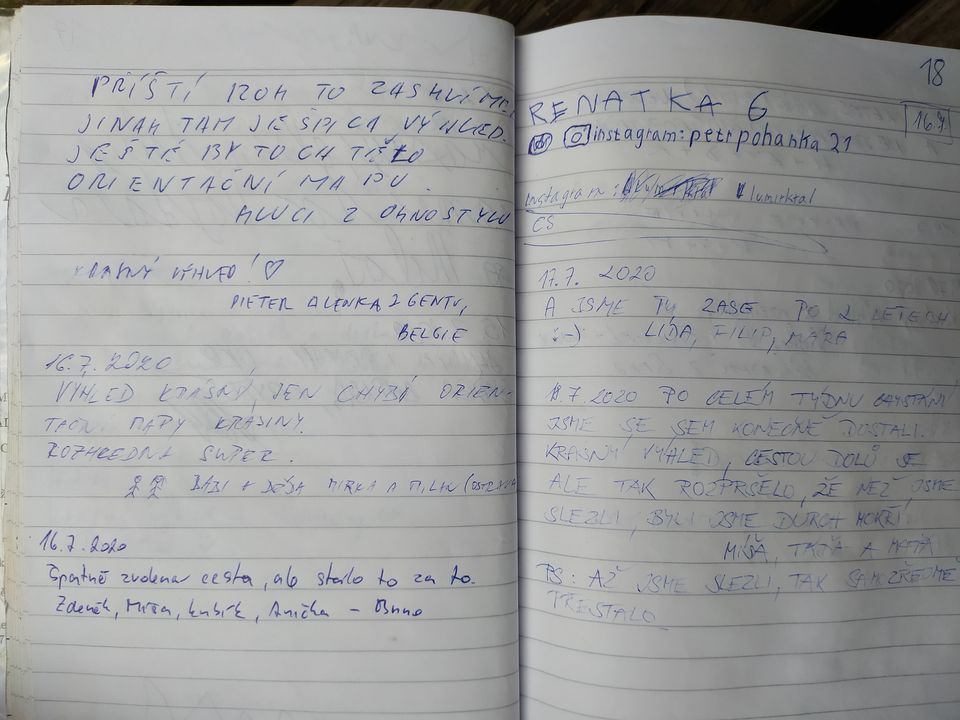 PŘÍŠTÍ ROK TO ZASKVÍME,
JINAK TAM JE ŠPICA VÝHLED.
JEŠTĚ BY TO CHTĚLO
ORIENTAČNÍ MAPU.
KLUCI Z OHNOSTYLU
KRÁSNÝ VÝHLED! ♡
PIETER ALENKA Z GENTU,
BELGIE
16.7.2020
VÝHLED KRÁSNÝ, JEN CHYBÍ ORIEN-
TAČNÍ MAPY KRAJINY.
ROZHLEDNA SUPER.
BÁBI + DĚDA MIRKA A MILAN
16.7.2020
Špatně zvolena cesta, ale stálo to za to.
Zdeněk, Míra, Kubík, Anička – Brno
18
16.7
RENATKA 6
instagram: petrpohanka21
instagram: lumirkral
CS
17.7. 2020
A JSME TU ZASE PO 2 LETECH
:-) LÍDA, FILIP, MÁRA
18.7.2020 PO CELÉM TÝDNU
JSME SE SEM KONEČNĚ DOSTALI.
KRÁSNÝ VÝHLED, CESTOU DOLŮ SE
ALE TAK ROZPRŠELO, ŽE NEŽ JSME
SLEZLI, BYLI JSME DURCH MOKŘÍ
MÍŠA, TÁŇA A MÁŤA
PS: AŽ JSME SLEZLI, TAK SAMOZŘEJMĚ
PŘESTALO